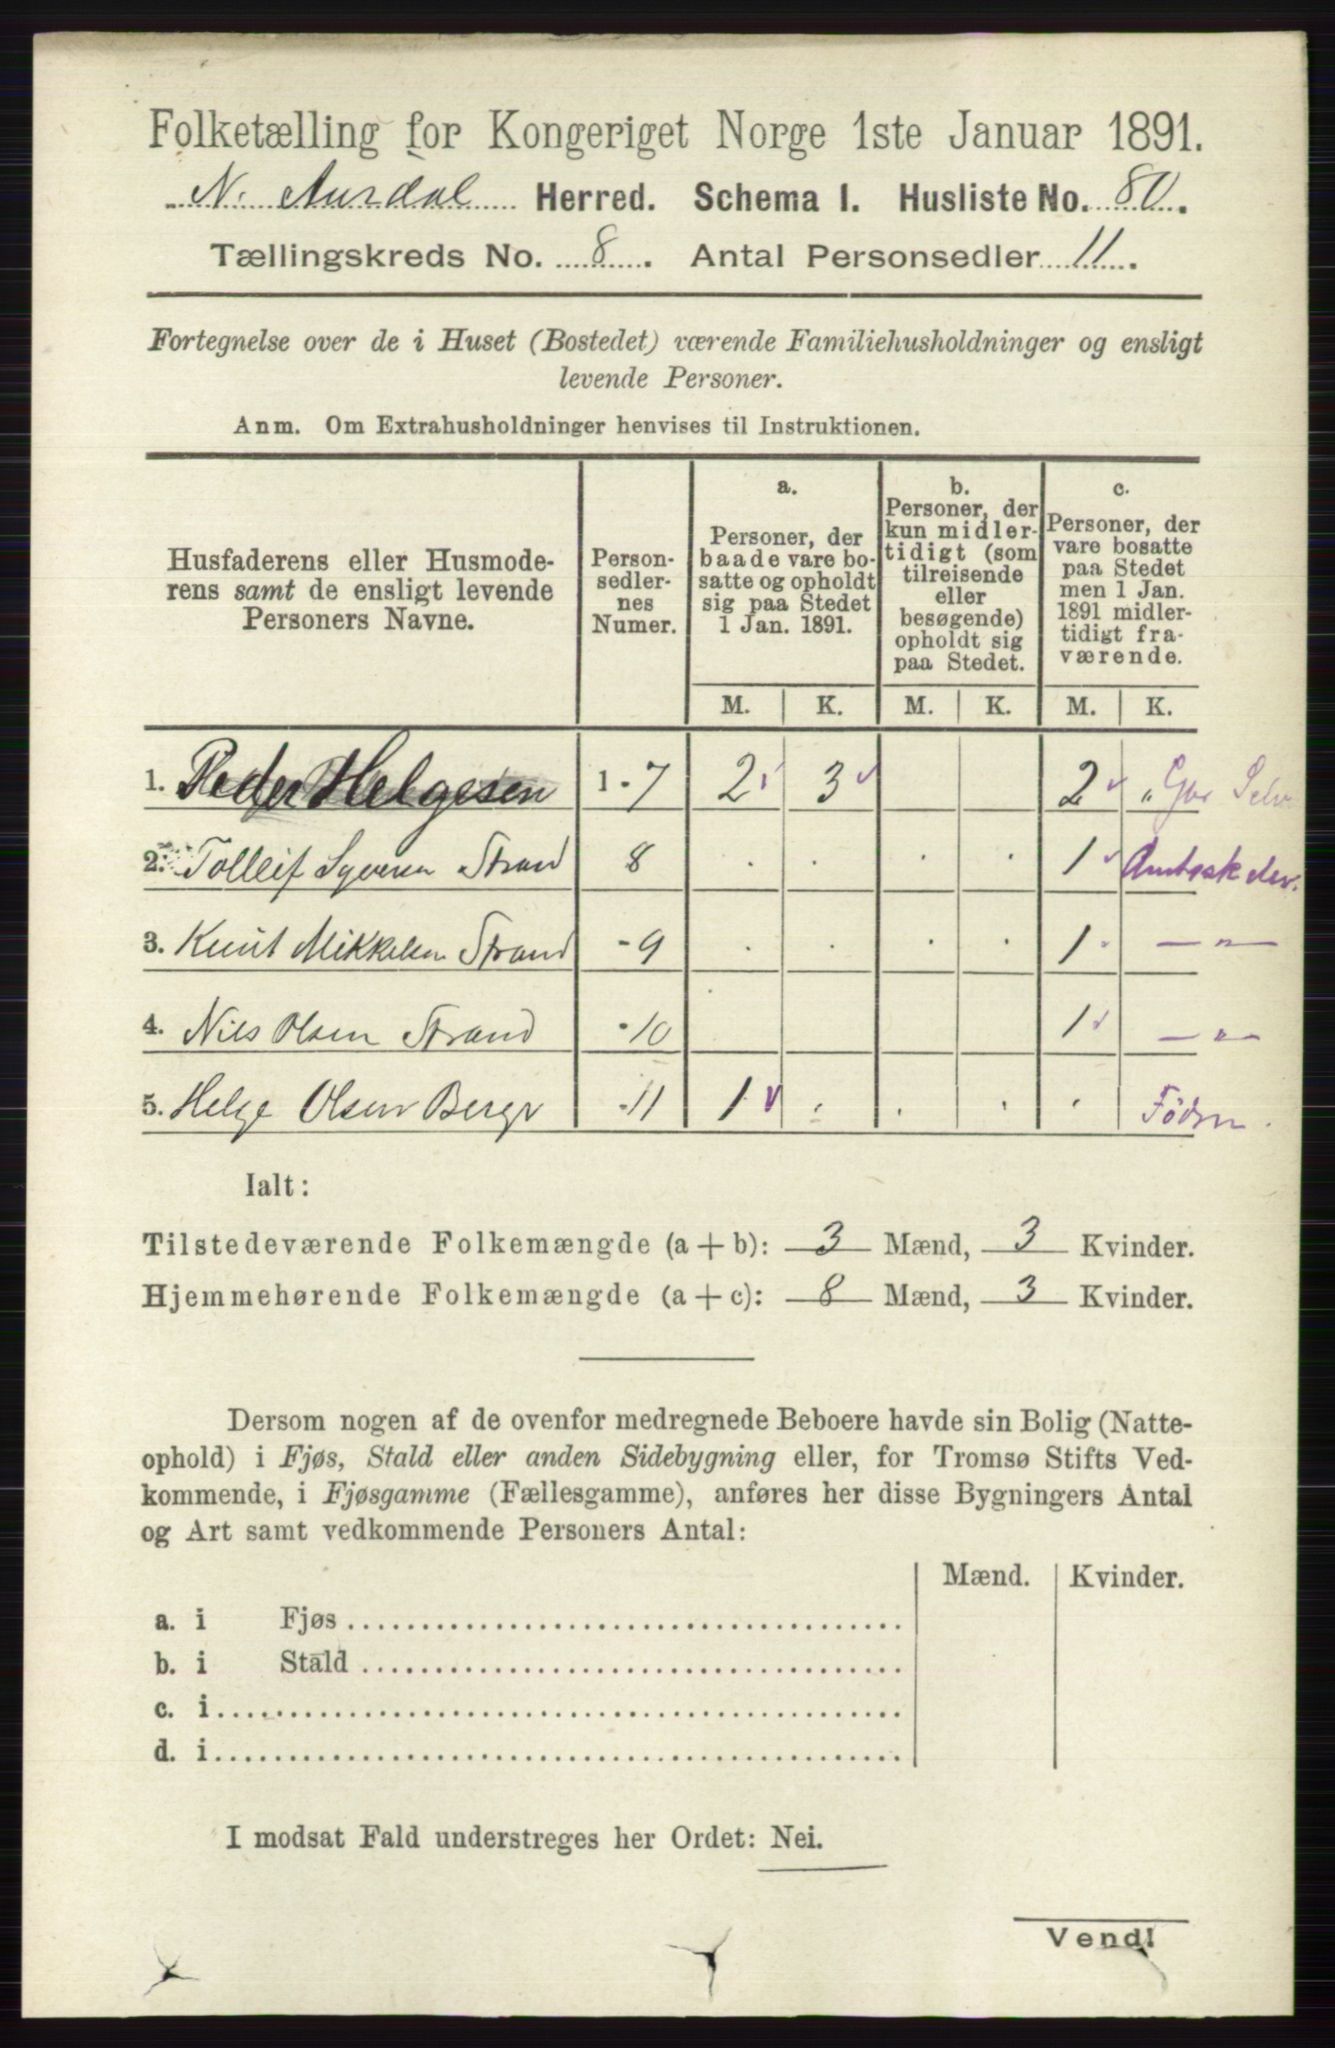 Folketælling for Kongeriget Norge 1ste Januar 1891.
N. Aurdal Herred. Schema I. Husliste No. 80.
Tællingskreds No. 8. Antal Personsedler 11.
Fortegnelse over de i Huset (Bostedet) værende Familiehusholdninger og ensligt
levende Personer.
Anm. Om Extrahusholdninger henvises til Instruktionen.
Husfaderens eller Husmode-
rens samt de ensligt levende
Personers Navne.
Person-
sedler-
nes
Numer.
a.
Personer, der
baade vare bo-
satte og opholdt
sig paa Stedet
1 Jan. 1891.
b.
Personer, der
kun midler-
tidigt (som
tilreisende
eller
besøgende)
opholdt sig
paa Stedet.
c.
Personer, der
vare bosatte
paa Stedet
men 1 Jan.
1891 midler-
tidigt fra-
værende.
M. K. M. K. M. K.
1. Peder Helgesen 1 - 7 2 3 2 "
2. Tolleif Syversen Strand 8 . . . . 1
3. Knut Mikkelsen Strand - 9 . . . . 1 — " —
4. Nils Olsen Strand - 10 1 — " —
5. Helge Olsen Berge - 11 1 . . . .
Ialt:
Tilstedeværende Folkemængde (a + b): 3 Mænd, 3 Kvinder.
Hjemmehørende Folkemængde (a + c): 8 Mænd, 3 Kvinder.
Dersom nogen af de ovenfor medregnede Beboere havde sin Bolig (Natte-
ophold) i Fjøs, Stald eller anden Sidebygning eller, for Tromsø Stifts Ved-
kommende, i Fjøsgamme (Fællesgamme), anføres her disse Bygningers Antal
og Art samt vedkommende Personers Antal:
Mænd. Kvinder.
a. i Fjøs
b. i Stald
c. i
d. i
I modsat Fald understreges her Ordet: Nei.
Vend!